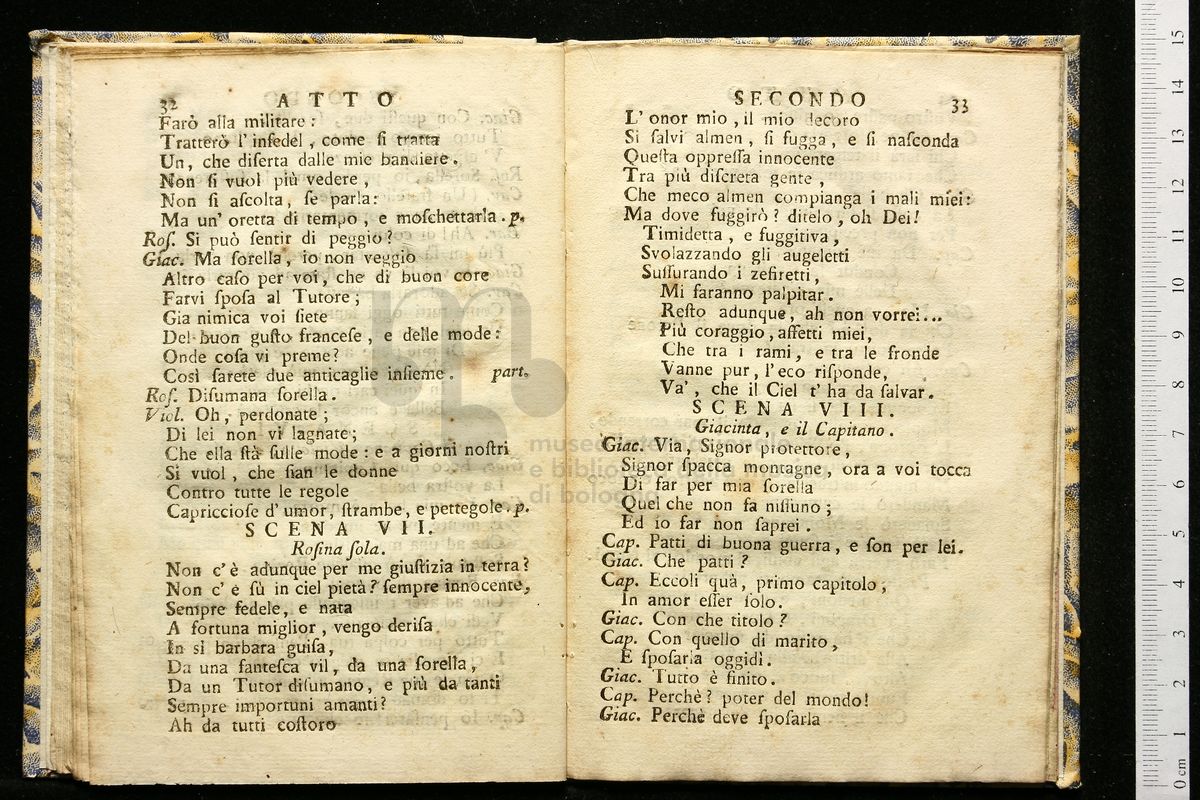 32 ATTO
Farò alla militare:
Tratterò l' infedel, come ſi tratta
Un, che diſerta dalle mie bandiere.
Non ſi vuol più vedere,
Non ſi aſcolta, ſe parla:
Ma un' oretta di tempo, e moſchettarla. p.
Roſ. Si può ſentir di peggio?
Giac. Ma ſorella, io non veggio
Altro caſo per voi, che di buon core
Farvi ſpoſa al Tutore;
Gia nimica voi ſiete
Del buon guſto franceſe, e delle mode:
Onde coſa vi preme?
Così ſarete due anticaglie inſieme. part.
Roſ. Diſumana ſorella.
Viol. Oh, perdonate;
Di lei non vi lagnate;
Che ella ſtà ſulle mode: e a giorni noſtri
Si vuol, che ſian le donne
Contro tutte le regole
Capriccioſe d' umor, ſtrambe, e pettegole. p.
SCENA VII.
Roſina ſola.
Non c' è adunque per me giuſtizia in terra?
Non c' è sù in ciel pietà? ſempre innocente,
Sempre fedele, e nata
A fortuna miglior, vengo deriſa,
In sì barbara guiſa,
Da una fanteſca vil, da una ſorella,
Da un Tutor diſumano, e più da tanti
Sempre importuni amanti?
Ah da tutti coſtoro
SECONDO 33
L' onor mio, il mio decoro
Si ſalvi almen, ſi fugga, e ſi naſconda
Queſta oppreſſa innocente
Tra più diſcreta gente,
Che meco almen compianga i mali miei:
Ma dove fuggirò? ditelo, oh Dei!
Timidetta, e fuggitiva,
Svolazzando gli augeletti
Suſſurando i zefiretti,
Mi faranno palpitar.
Reſto adunque, ah non vorrei...
Più coraggio, affetti miei,
Che tra i rami, e tra le fronde
Vanne pur, l' eco riſponde,
Va', che il Ciel t' ha da ſalvar.
SCENA VIII.
Giacinta, e il Capitano.
Giac. Via, Signor protettore,
Signor ſpacca montagne, ora a voi tocca
Di far per mia ſorella
Quel che non fa niſſuno;
Ed io far non ſaprei.
Cap. Patti di buona guerra, e ſon per lei.
Giac. Che patti?
Cap. Eccoli quà, primo capitolo;
In amor eſſer ſolo.
Giac. Con che titolo?
Cap. Con quello di marito,
E ſpoſarla oggidì.
Giac. Tutto è finito.
Cap. Perchè? poter del mondo!
Giac. Perchè deve ſpoſarla
museo internazionale
e biblioteca della musica
di bologna
0 cm 1 2 3 4 5 6 7 8 9 10 11 12 13 14 15